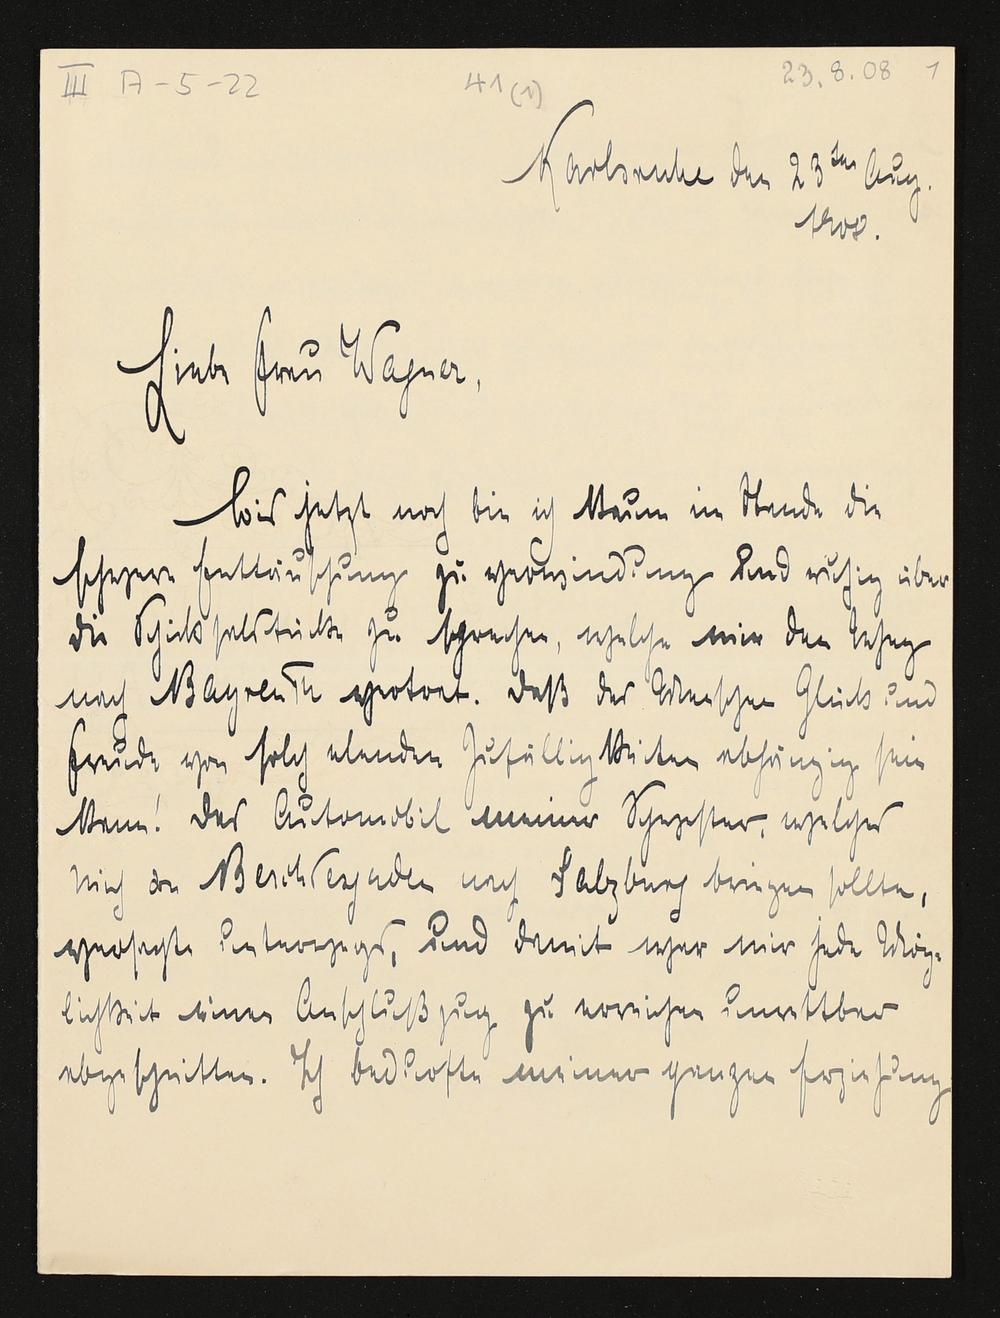 III A-5-22
41(1)
23.8.08 1
Karlsruhe den 23ten Aug.
1908.
Liebe Frau Wagner,
Bis jetzt noch bin ich kaum im Stande die
schwere Enttäuschung zu verwindung und ruhig über
die Schicksalstücke zu sprechen, welche mir den Weg
nach Bayreuth vertrat. Daß des Menschen Glück und
Freude von solch elenden Zufälligkeiten abhängig sein
kann! Das Automobil meiner Schwester, welches
mich von Berchtesgaden nach Salzburg bringen sollte,
versagte unterwegs, und damit war mir jede Mög-
lichkeit einen Anschlußzug zu erreichen unrettbar
abgeschnitten. Ich bedurfte meiner ganzen Erziehung